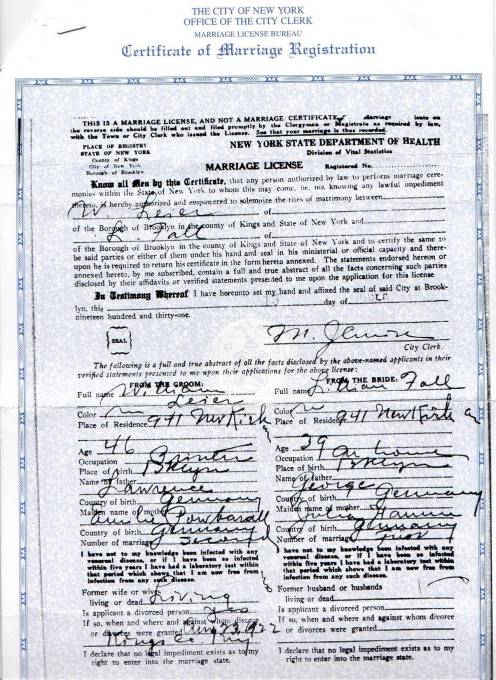 THE CITY OF NEW YORK
OFFICE OF THE CITY CLERK
MARRIAGE LICENSE BUREAU
Certificate of Marriage Registration
THIS IS A MARRIAGE LICENSE, AND NOT A MARRIAGE CERTIFICATE,
the reverse side should be filled out and filed promptly by the Clergyman or Magistrate as required by law,
with the Town or City Clerk who issued the License. See that your marriage is thus recorded.
PLACE OF REGISTRY
STATE OF NEW YORK
County of Kings
City of New York
Borough of Brooklyn
NEW YORK STATE DEPARTMENT OF HEALTH
Division of Vital Statistics
MARRIAGE LICENSE
Registered No.
Know all Men by this Certificate, that any person authorized by law to perform marriage cere-
monies within the State of New York to whom this may come, he, not knowing any lawful impediment
thereto, is hereby authorized and empowered to solemnize the rites of matrimony between
W. Leier of
of the Borough of Brooklyn in the county of Kings and State of New York and
L Fall of
of the Borough of Brooklyn in the county of Kings and State of New York and to certify the same to
be said parties or either of them under his hand and seal in his ministerial or official capacity and there-
upon he is required to return his certificate in the form hereto annexed. The statements endorsed hereon or
annexed hereto, by me subscribed, contain a full and true abstract of all the facts concerning such parties
disclosed by their affidavits or verified statements presented to me upon the application for this license
In Testimony Whereof I have hereunto set my hand and affixed the seal of said City at Brook-
lyn, this day of
nineteen hundred and thirty-one.
SEAL
City Clerk.
The following is a full and true abstract of all the facts disclosed by the above-named applicants in their
verified statements presented to me upon their applications for the above license:
FROM THE GROOM:
Full name William
Leier
Color
Place of Residence 941 Newkirk
Age 46
Occupation Printer
Place of birth Bklyn
Name of father
Lawrence
Country of birth Germany
Maiden name of mother
Country of birth Germany
Number of marriage Second
I have not to my knowledge been infected with any
venereal disease, or if I have been so infected
within five years I have had a laboratory test within
that period which shows that I am now free from
infection from any such disease.
Former wife or wives
living or dead Living
Is applicant a divorced person Yes
If so, when and where and against whom divorce
or divorces were granted Aug 23, 1922
Kings Co
I declare that no legal impediment exists as to my
right to enter into the marriage state.
FROM THE BRIDE:
Full name Lillian Fall
Color W
Place of Residence 941 Newkirk
Age 39
Occupation At home
Place of birth Bklyn
Name of father
George
Country of birth Germany
Maiden name of mother
Julia
Country of birth Germany
Number of marriage First
I have not to my knowledge been infected with any
venereal disease, or if I have been so infected
within five years I have had a laboratory test within
that period which shows that I am now free from
infection from any such disease.
Former husband or husbands
living or dead
Is applicant a divorced person
If so, when and where and against whom divorce
or divorces were granted
I declare that no legal impediment exists as to my
right to enter into the marriage state.